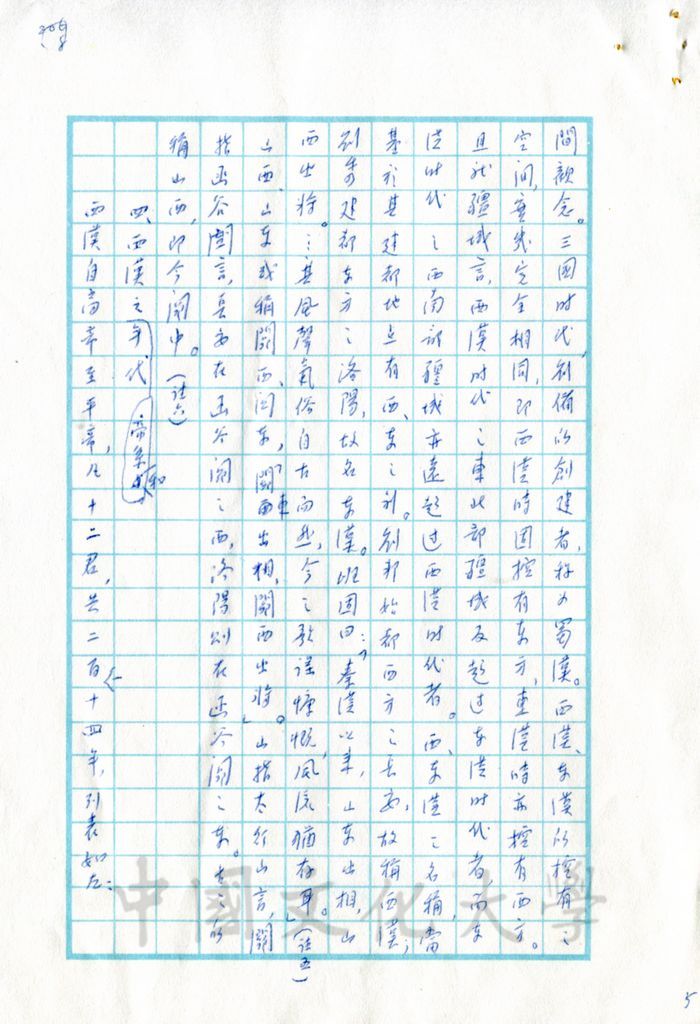 間觀念。三國时代,刘備的創建者,称为蜀漢。西漢、东漢的控有之
空间,實幾完全相同,即西漢時固控有东方,東漢時亦控有西方。
且就疆域言,西漢时代之東北部疆域反超过东漢时代者,而东
漢时代之西南部疆域亦遠超过西漢时代者。西、东漢之名稱,當
基於其建都地点有西、东之别。刘邦始都西方之长安,故稱西漢;
刘秀建都东方之洛陽,故名东漢。班固曰:「秦漢以来,山东出相,山
西出将。⋯其風聲氣俗自古而然,今之歌谣慷慨,風流猶存耳。」(註五)
山西、山东或稱關西、関东,「關東出相,關西出将。」山指太行山言,關
指函谷關言,長安在函谷関之西,洛陽则在函谷関之东。古之所
稱山西,即今関中。(註六)
四、西漢之年代和帝系
西漢自高帝至平帝,凡十二君,共二百一十四年,列表如左:
中國文化大學
5